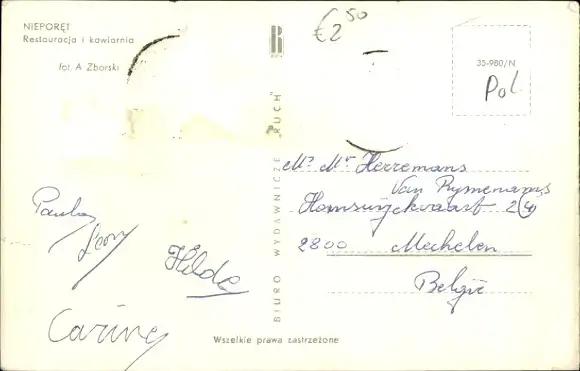 NIEPORĘT
Restauracja i kawiarnia
fot. A. Zborski
€2,50
35-980/N
Pol
BIURO WYDAWNICZE „RUCH”
Mr Mr Herremans
Van Rymenans
2(4)
2800 Mechelen
België
Paula
Leon
Hilde
Carine
Wszelkie prawa zastrzeżone